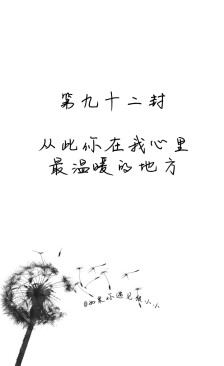 第九十二封
从此你在我心里
最温暖的地方
@如果你遇见根小小